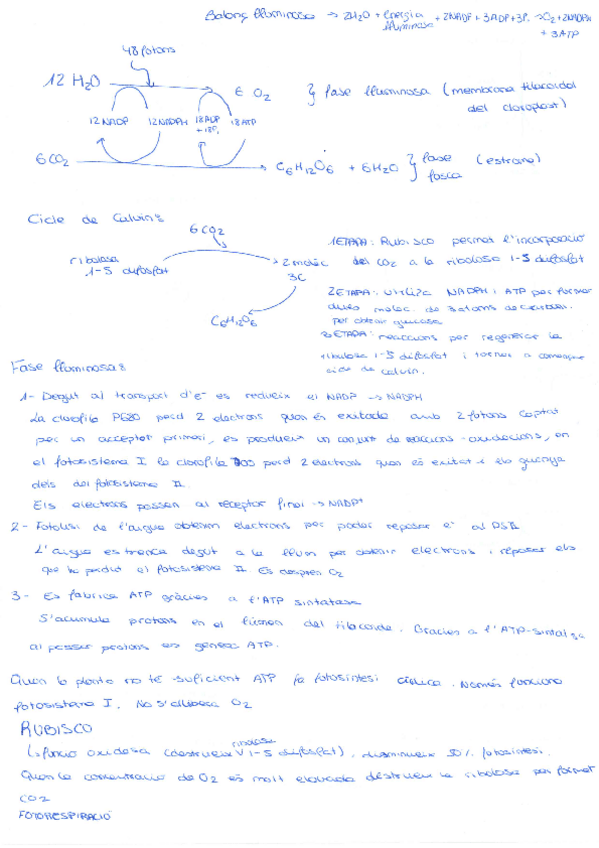 Balanç lluminosa → 2H2O + Energia lluminosa + 2NADP + 3ADP + 3Pi → O2 + 2NADPH + 3ATP
48 fotons
12 H2O 6 O2 } fase lluminosa (membrana tilacoidal del cloroplast)
12NADP 12NADPH 18ADP + 18Pi 18ATP
6CO2 → C6H12O6 + 6H2O } fase fosca (estroma)
Cicle de Calvin:
6CO2
ribulosa 1-5 difosfat → 2 molèc 3C
C6H12O6
1ETAPA: Rubisco permet l'incorporació del CO2 a la ribulosa 1-5 difosfat
2ETAPA: utilitza NADPH i ATP per formar dues molec. de 3 atoms de carboni. per obtenir glucosa
3ETAPA: reaccions per regenerar la ribulosa 1-5 difosfat i tornar a començar cicle de calvin.
Fase lluminosa:
1- Degut al transport d'e- es redueix el NADP → NADPH
La clorofila P680 perd 2 electrons quan és exitada amb 2 fotons captat
per un acceptor primari, es produeix un conjunt de reaccions-oxidacions, en
el fotosistema I la clorofila perd 2 electrons quan és exitat i els guanya
dels del fotosistema II.
Els electrons passen al receptor final → NADP+
2- Fotolisi de l'aigua obtenim electrons per poder reposar e- al PSII
L'aigua es trenca degut a la llum per obtenir electrons i reposar els
que ha perdut el fotosistema II Es desprèn O2
3- Es fabrica ATP gràcies a l'ATP sintatasa
S'acumula protons en el lúmen del tilacoide. Gracies a l'ATP-sintatsa
al passar protons es genera ATP.
Quan la planta no té suficient ATP fa fotosíntesi cíclica. Només funciona
fotosistema I. No s'allibera O2
RUBISCO
↳ funció oxidasa (destrueix ribulosa 1-5 difosfat). disminueix 50% fotosintesi.
Quan la concentració de O2 és molt elevada destrueix la ribulosa per format
CO2
FOTORESPIRACIÓ